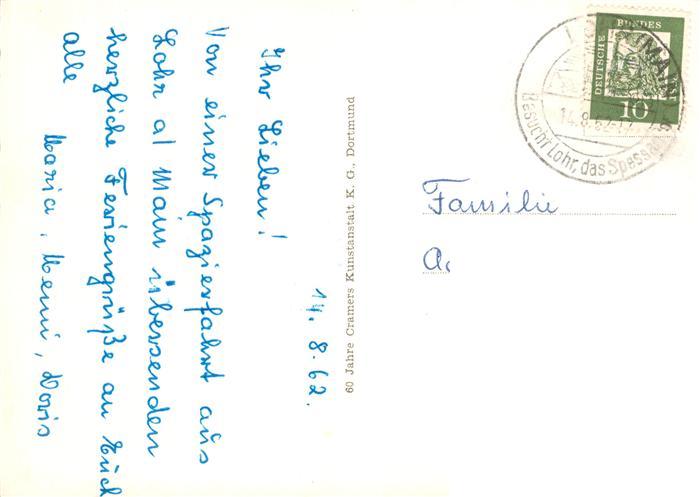 14. 8. 62.
Ihr Lieben!
Von einer Spazierfahrt aus
Lohr a/ Main übersenden
herzliche Feriengrüße an Euch
alle
Maria, Menni, Doris
60 Jahre Cramers Kunstanstalt K. G., Dortmund
DEUTSCHE
BUNDES
POST
10
MAIN
14.8.62-17
Besucht Lohr, das Spessart
Familie
A.